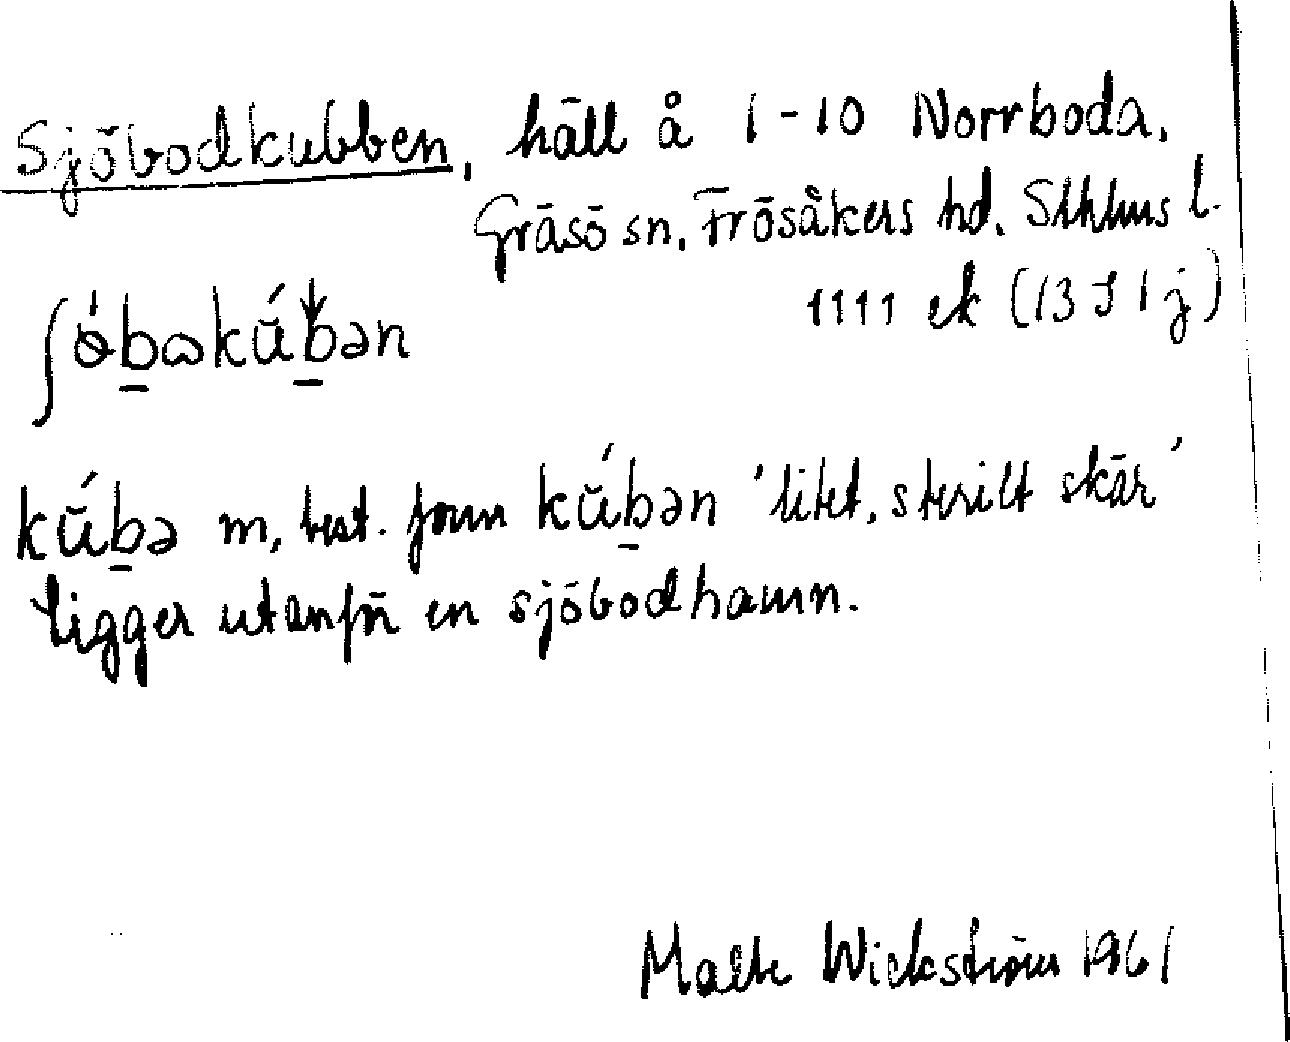 Sjöbodkubben, häll å 1-10 Norrboda,
Gräsö sn, Frösåkers hd, Sthlms l.
1111 ek (13 I 1 j)
kŭ́b̲ə m, best. form kŭ́b̲ən 'litet, sterilt skär'
ligger utanför en sjöbodhamn.
Malte Wickström 1961